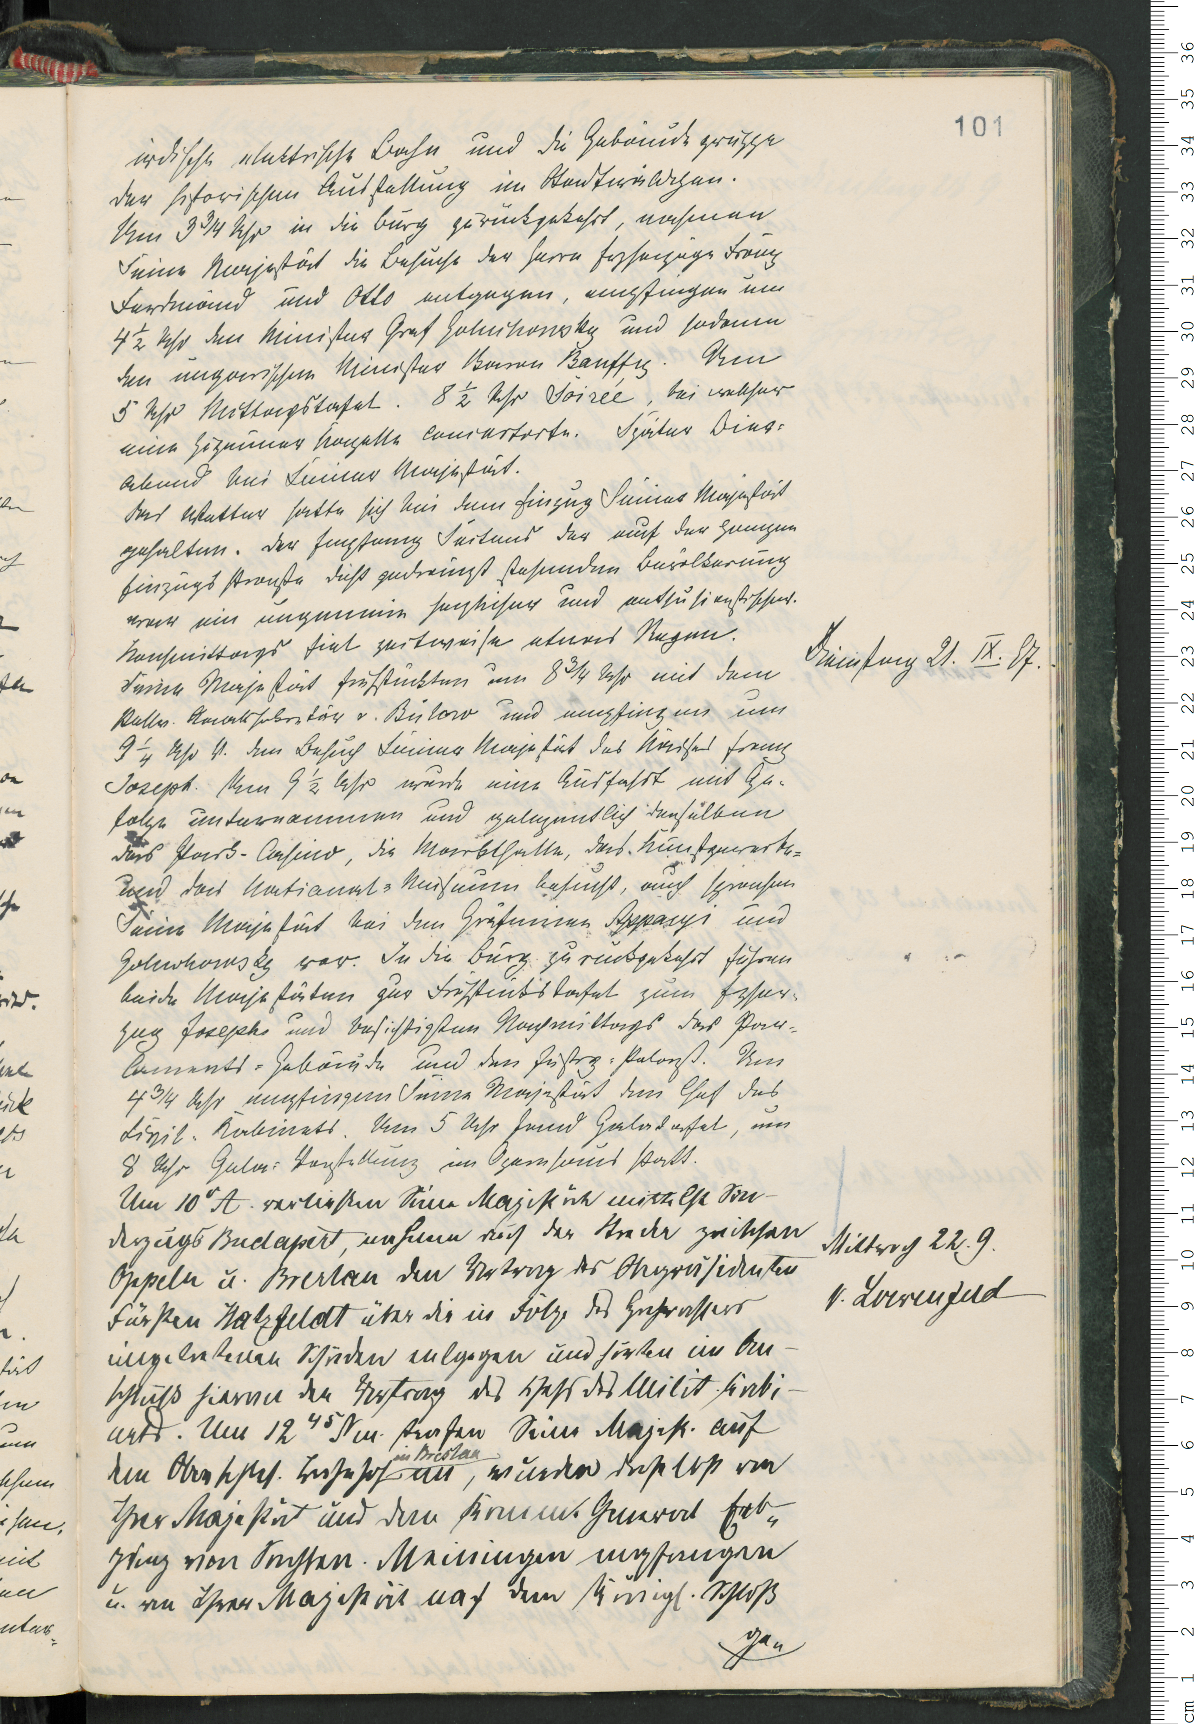 101
irdische elektrische Bahn und die Gebäudegruppe
der historischen Ausstellung im Stadtwäldchen.
Um 3 3/4 Uhr in die Burg zurückgekehrt, nahmen
Seine Majestät die Besuche der Herrn Erzherzöge Franz
Ferdinand und Otto entgegen, empfingen um
4 1/2 Uhr den Minister Graf Goluchowsky und sodann
den ungarischen Minister Baron Banffy. Um
5 Uhr Mittagstafel. 8 1/2 Uhr Soirée, bei welcher
eine Zigeuner Kapelle concertirte. Später Bier-
abend bei Seiner Majestät.
Das Wetter hatte sich bei dem Einzug Seiner Majestät
gehalten. Der Empfang Seitens der auf der ganzen
Einzugsstraße dicht gedrängt stehenden Bevölkerung
war ein ungemein herzlicher und enthusiastischer.
Nachmittags fiel zeitweise etwas Regen.
Dienstag 21. IX. 97.
Seine Majestät frühstückten um 8 3/4 Uhr mit dem
Stellv. Staatssekretär v. Bülow und empfingen um
9 1/4 Uhr V. den Besuch Seiner Majestät des Kaisers Franz
Joseph. Um 9 1/2 Uhr wurde eine Ausfahrt mit Ge-
folge unternommen und gelegentlich derselben
das Park-Casino, die Markthalle, das Kunstgewerbe-
und das National-Museum besucht, auch sprachen
Seine Majestät bei den Gräfinnen Appanyi und
Goluchowsky vor. In die Burg zurückgekehrt fuhren
beide Majestäten zur Frühstückstafel zum Erzher-
zog Joseph und besichtigten Nachmittags das Par-
laments-Gebäude und den Justiz-Palast. Um
4 3/4 Uhr empfingen Seine Majestät den Chef des
Civil-Kabinets. Um 5 Uhr fand Galatafel, um
8 Uhr Gala-Vorstellung im Opernhaus statt.
Um 10 A. verließen Seine Majestät mittelst Son-
derzugs Budapest, nahmen auf der Strecke zwischen
Mittwoch 22. 9.
Oppeln u. Breslau den Vortrag des Oberpräsidenten
v. Loewenfeld
Fürsten Hatzfeldt über die in Folge des Hochwassers
eingetretenen Schäden entgegen und hörten im An-
schluß hieran den Vortrag des Chefs des Milit. Kabi-
nets. Um 12 45 Nm. trafen Seine Majest. auf
in Breslau
dem Oberschles. Bahnhof ein, wurden daselbst von
Ihrer Majestät und dem Komm. General Erb-
prinz von Sachsen-Meiningen empfangen
u. von Ihrer Majestät nach dem Königl. Schloß